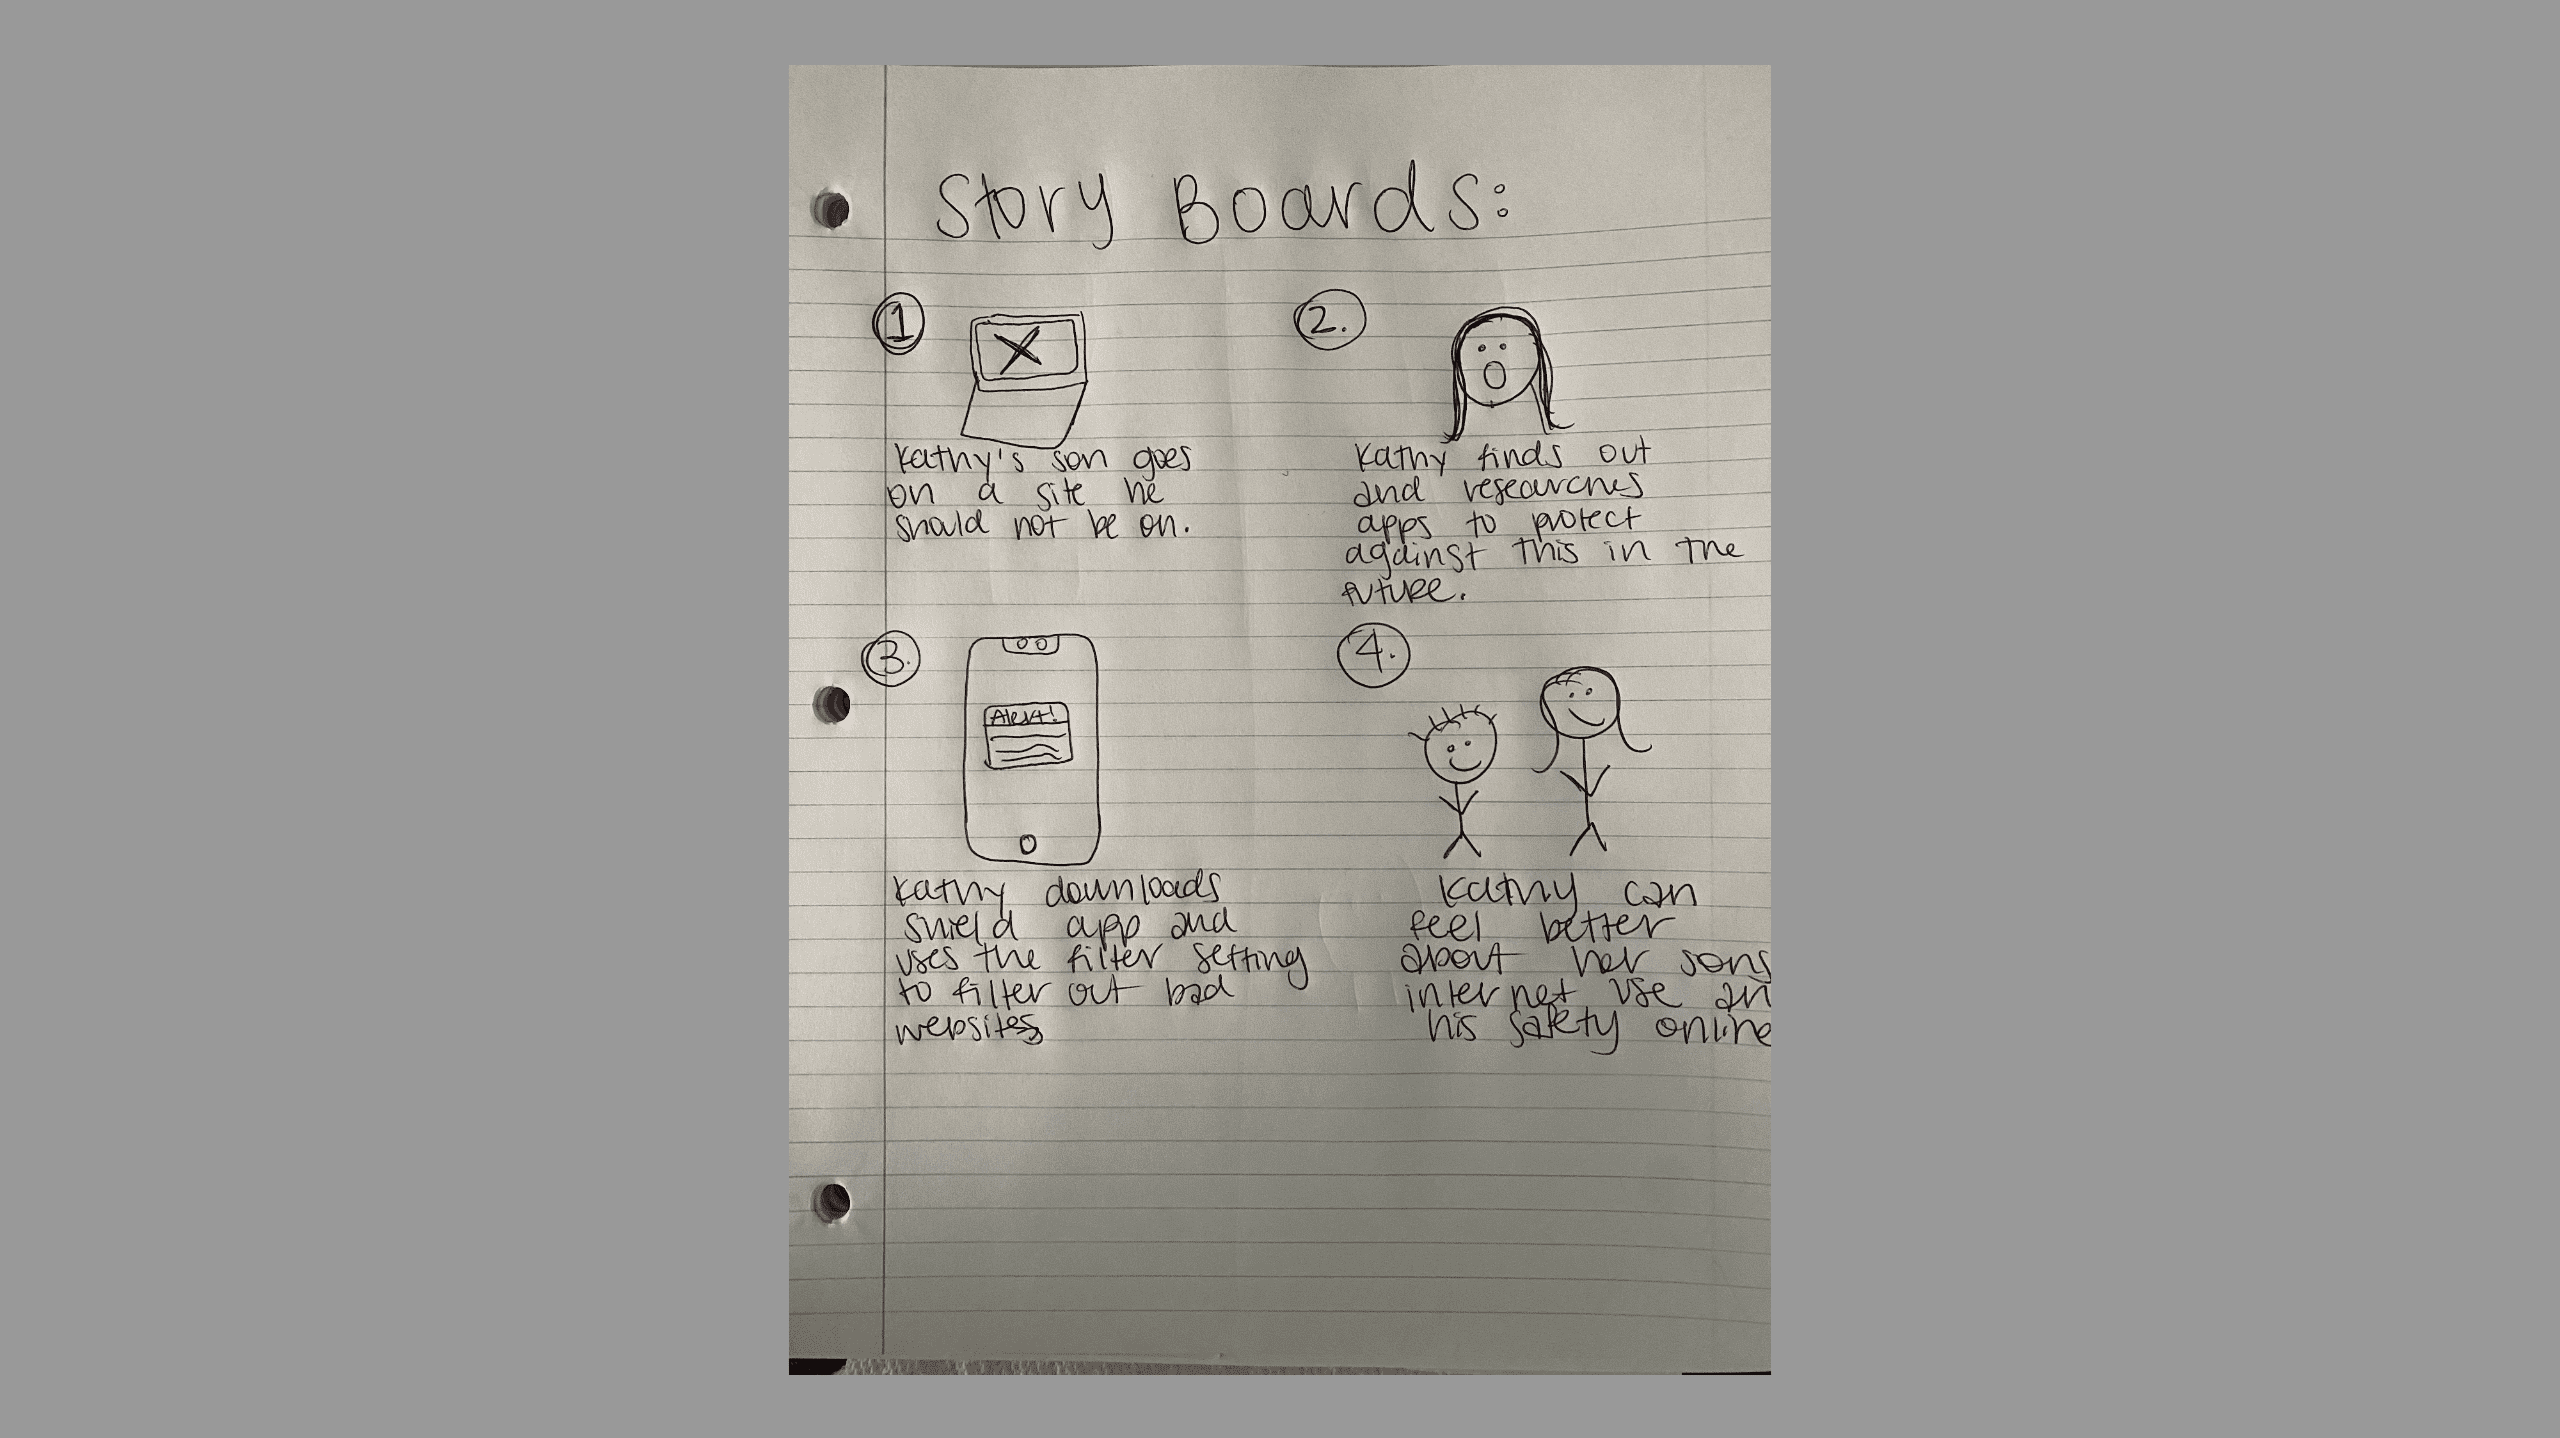 Story Boards:
1
Kathy's son goes
on a site he
should not be on.
2.
Kathy finds out
and researches
apps to protect
against this in the
future.
3.
Alert!
Kathy downloads
shield app and
uses the filter setting
to filter out bad
websites
4.
Kathy can
feel better
about her sons
internet use an
his safety online